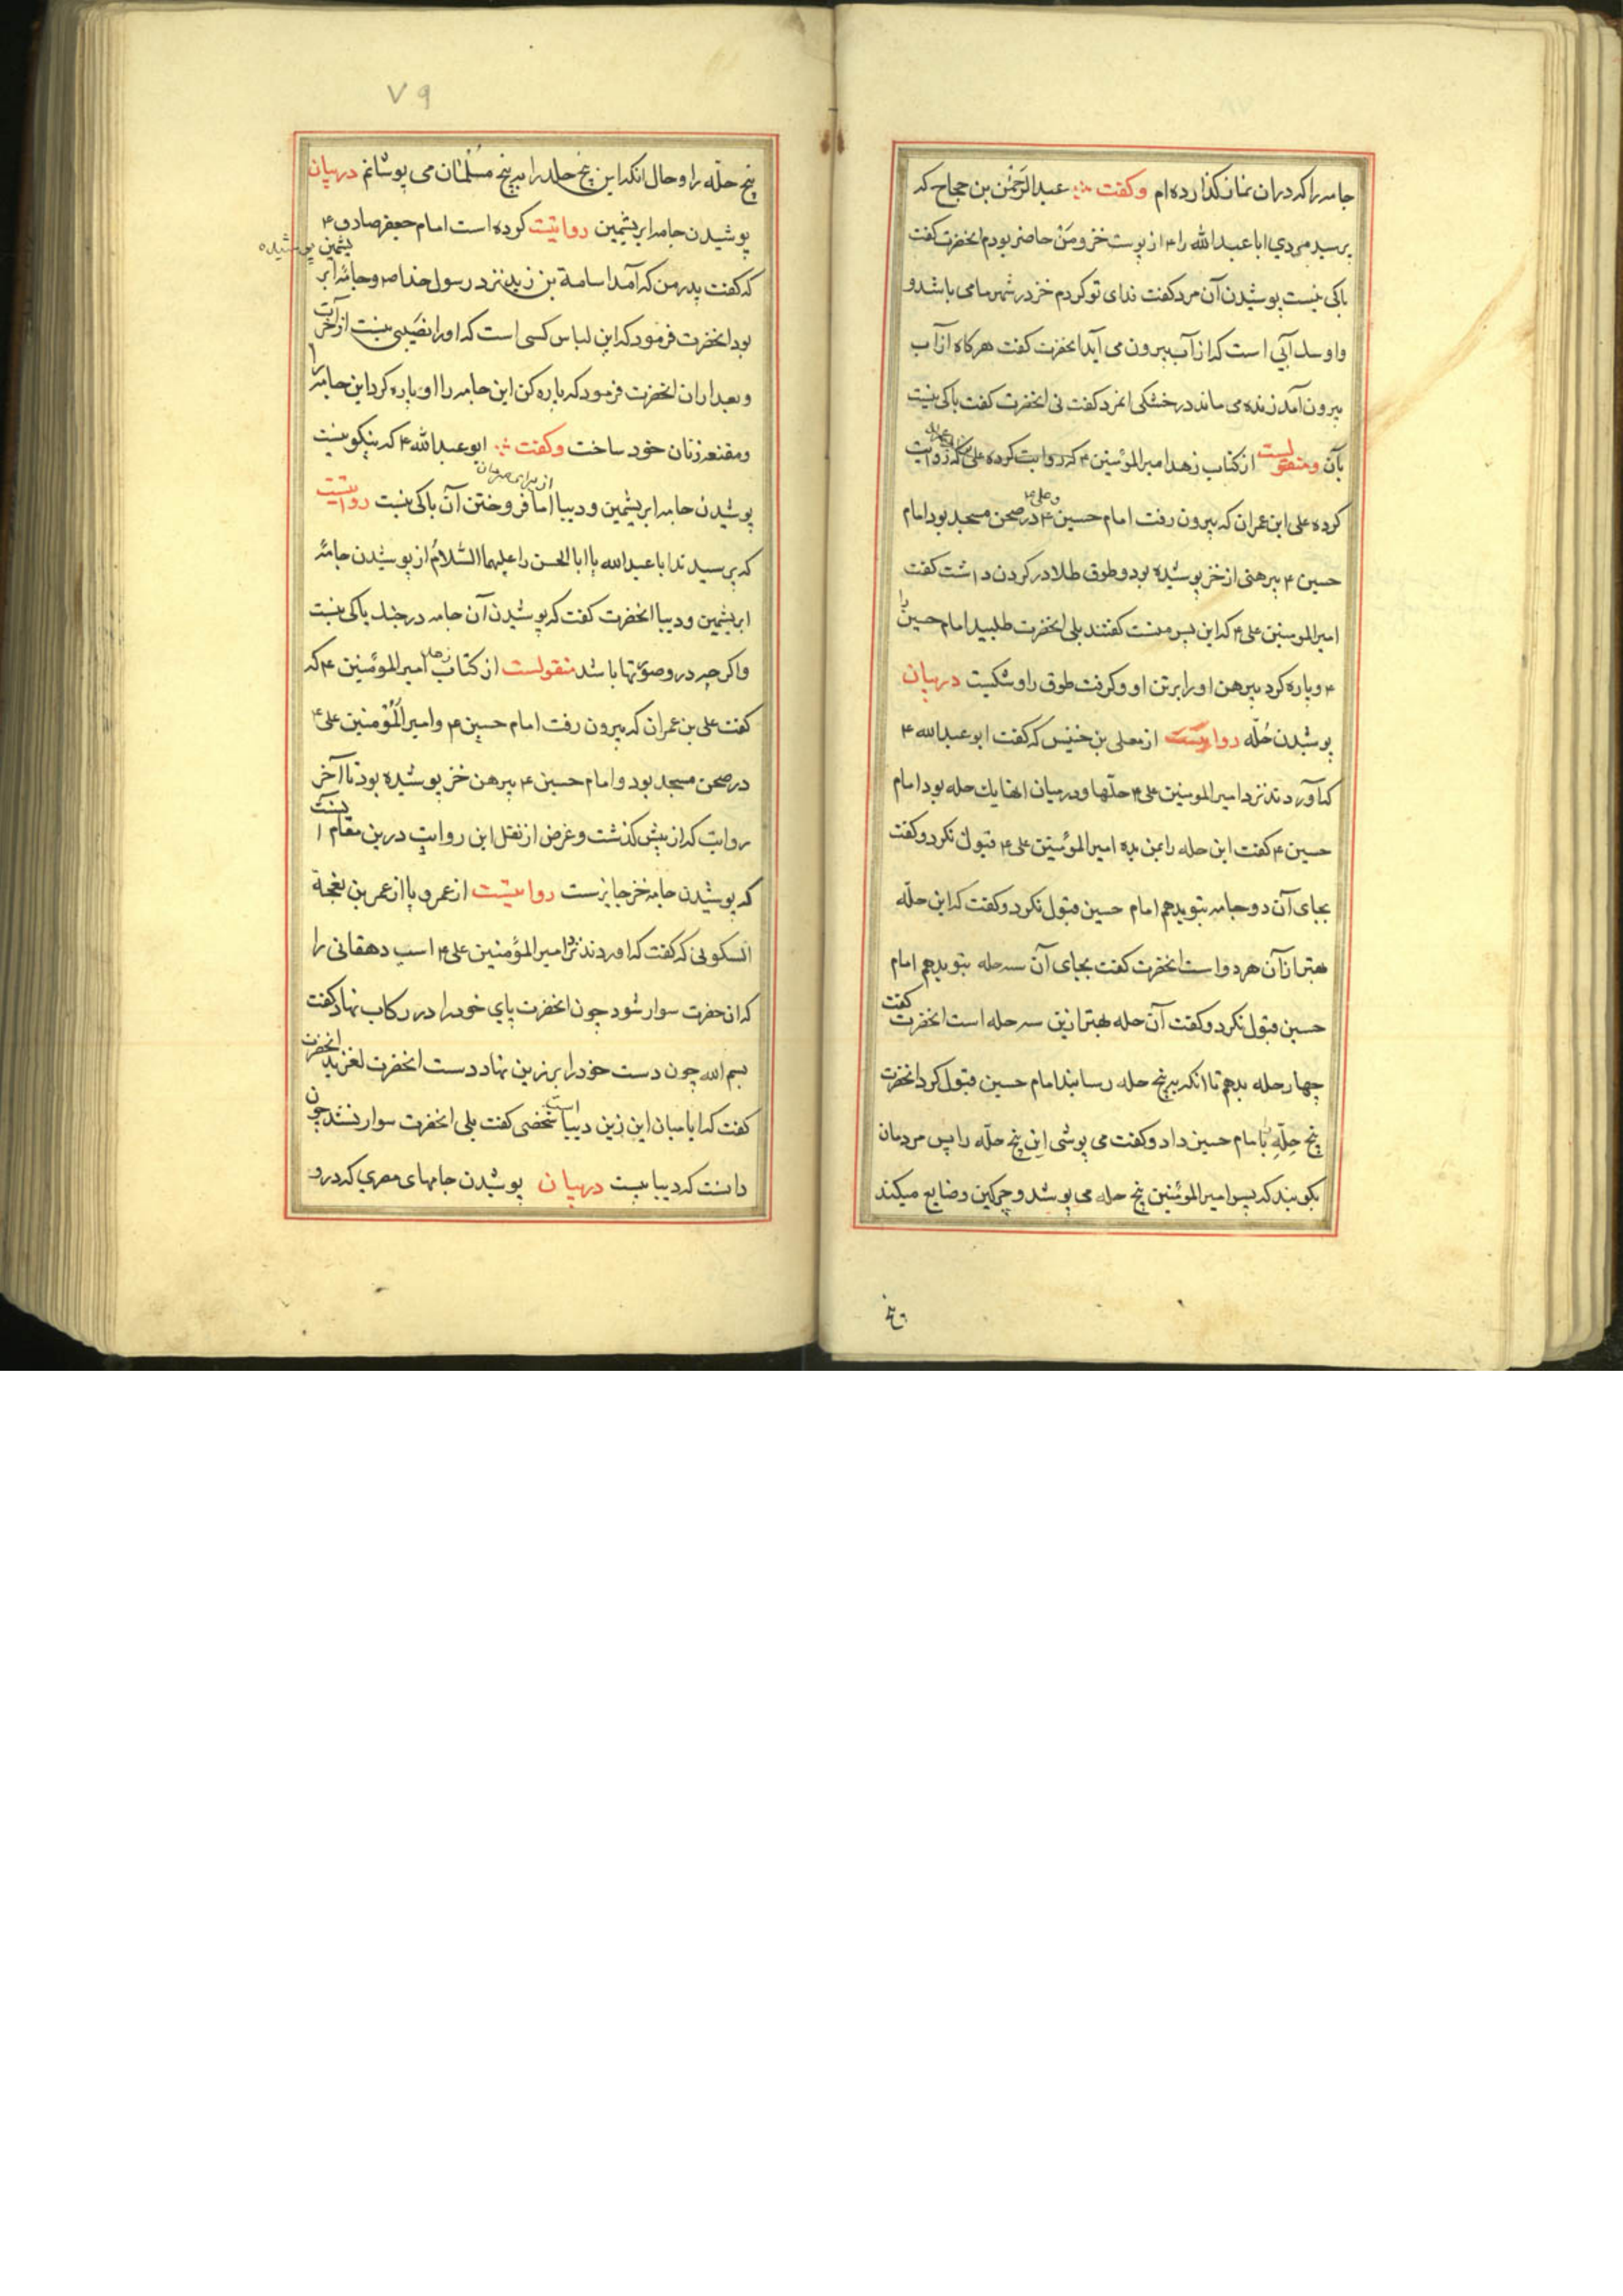 جامه را که در ان نماز کذارده ام وکفت عبدالرَّحْمٰن بن حجاج که
پرسید مردی ابا عبدالله را ۴ از پوست خز ومَنْ حاضر بودم انحضرت کفت
باکی نیست پوشیدن آن مرد کفت فدای تو کردم خز در شهر ما می باشد و
واو سك آبی است که از آب بیرون می آید انحضرت کفت هرکاه از آب
بیرون آمد زنده می ماند در خشکی انمرد کفت نی انحضرت کفت باکی نیست
بآن ومنقولست از کتاب زهد امیرالموٴمنین ۴ که روایت کرده علی
کرده علی ابن عمران که بیرون رفت امام حسین ۴ وعلی ۴ در صحن مسجد بود امام
حسین ۴ پیرهنی از خز پوشیده بود و طوق طلا در کردن داشت کفت
امیرالمومنین علی ۴ که این پسر منست کفتند بلی انحضرت طلبید امام حسین را
۴ و پاره کرد پیرهن او را بر تن او وکرفت طوق را وشکست در بیان
پوشیدن حُلّه روایتست از معلی بن خنیس که کفت ابو عبدالله ۴
که آوردند نزد امیرالمومنین علی ۴ حلّها ودر میان انها یك حله بود امام
حسین ۴ کفت این حله را بمن بده امیرالموٴمنین علی ۴ قبول نکرد وکفت
بجای آن دو جامه بتو بدهم امام حسین قبول نکرد وکفت که این حلّه
بهتر از آن هر دو است انحضرت کفت بجای آن سه حله بتو بدهم امام
حسین قبول نکرد وکفت آن حله بهتر ازین سه حله است انحضرت کفت
چهار حله بدهم تا انکه بپنج حله رسانید امام حسین قبول کرد انحضرت
پنج حِلّهِ بامام حسین داد وکفت می پوشی این پنج حلّه را پس مردمان
بکویند که پسر امیرالموٴمنین پنج حله می پوشد و چرکین وضایع میکند
۷۹
پنج حلّه را وحال انکه این پنج حله را به پنج مسُلمٰان می پوشانم در بیان
پوشیدن جامه ابریشمین روایتست کرده است امام جعفر صادق ۴
که کفت پدر من که آمد اسامة بن زید نزد رسول خدا ص وجامهٔ ابر یشمین پوشیده
بود انحضرت فرمود که این لباس کسی است که او را نصَیبی نیست از آخرت
وبعد از ان انحضرت فرمود که پاره کن این جامه را او پاره کرد این جامه را
ومقنعه زنان خود ساخت وکفت ابو عبدالله ۴ که نیکو نیست
پوشیدن جامه ابریشمین ودیبا از برای مردان اما فروختن آن باکی نیست روایتست
که پرسیدند ابا عبدالله یا ابا الحسن را علیهما السّلامُ از پوشیدن جامهٔ
ابریشمین ودیبا انحضرت کفت که پوشیدن آن جامه در جنك باکی نیست
واکر چه درو صورتها باشد منقولست از کتاب زهد امیرالموٴمنین ۴ که
کفت علی بن عمران که بیرون رفت امام حسین ۴ وامیراَلمُؤْمنین علی ۴
در صحن مسجد بود وامام حسین ۴ پیرهن خز پوشیده بود تا آخر
روایت که از پیش کذشت وغرض از نقل این روایت درین مقام انست
که پوشیدن جامه خز جایزست روایتست از عمرو یا از عمر بن نعجة
السکونی که کفت که اوردند نزد امیرالموٴمنین علی ۴ اسب دهقانی را
که ان حضرت سوار شود چون انحضرت پای خود را در رکاب نهاد کفت
بسم الله چون دست خود را بر زین نهاد دست انحضرت لغزید انحضرت
کفت که ایا میان این زین دیبا است شخصی کفت بلی انحضرت سوار نشد چون
دانست که دیبا نیست در بیان پوشیدن جامهای مصری که درو